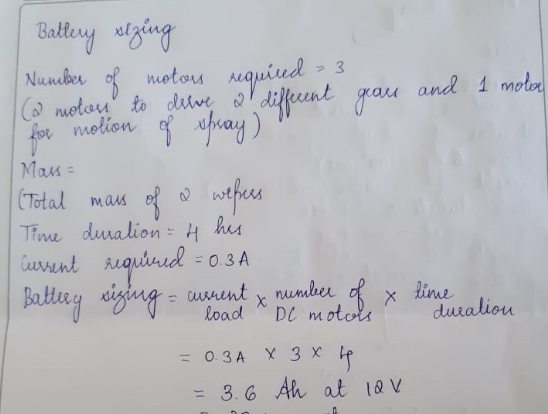 Battery sizing
Number of motors required = 3
(2 motors to drive 2 different gears and 1 motor
for motion of spray)
Mass =
(Total mass of 2 wipers
Time duration = 4 hrs
Current required = 0.3A
Battery sizing = current load × number of DC motors × time duration
= 0.3A × 3 × 4
= 3.6 Ah at 12V